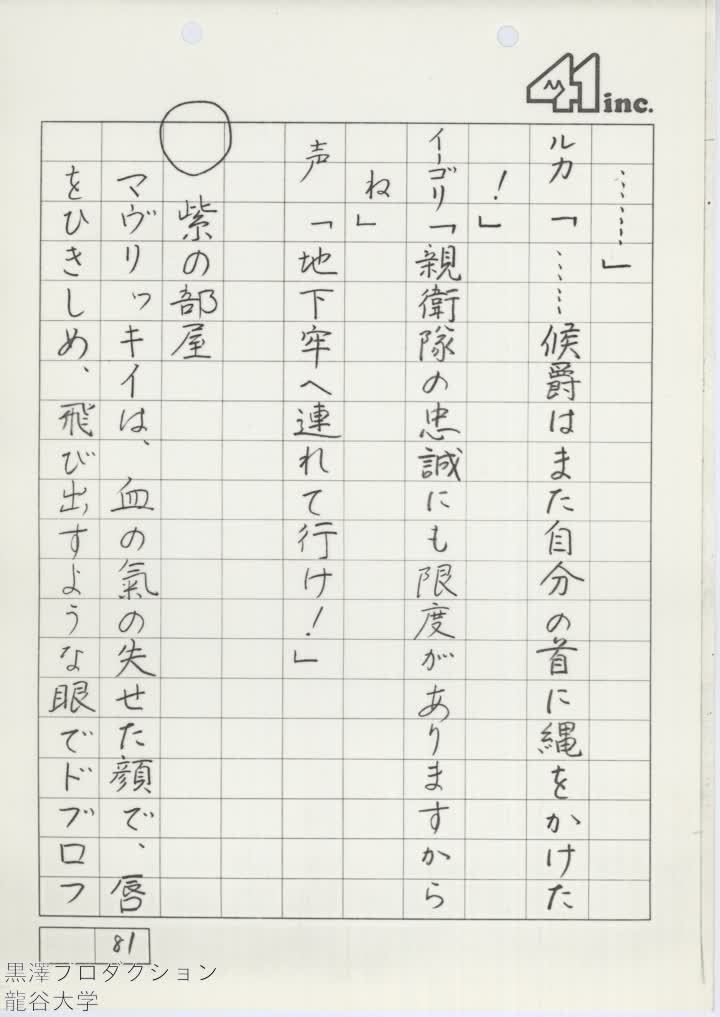 41 inc.
……」
ルカ「……候爵はまた自分の首に縄をかけた
！」
イーゴリ「親衛隊の忠誠にも限度がありますから
ね」
声「地下牢へ連れて行け！」
○　紫の部屋
マヴリッキイは、血の氣の失せた顔で、唇
をひきしめ、飛び出すような眼でドブロフ
81
黒澤プロダクション
龍谷大学